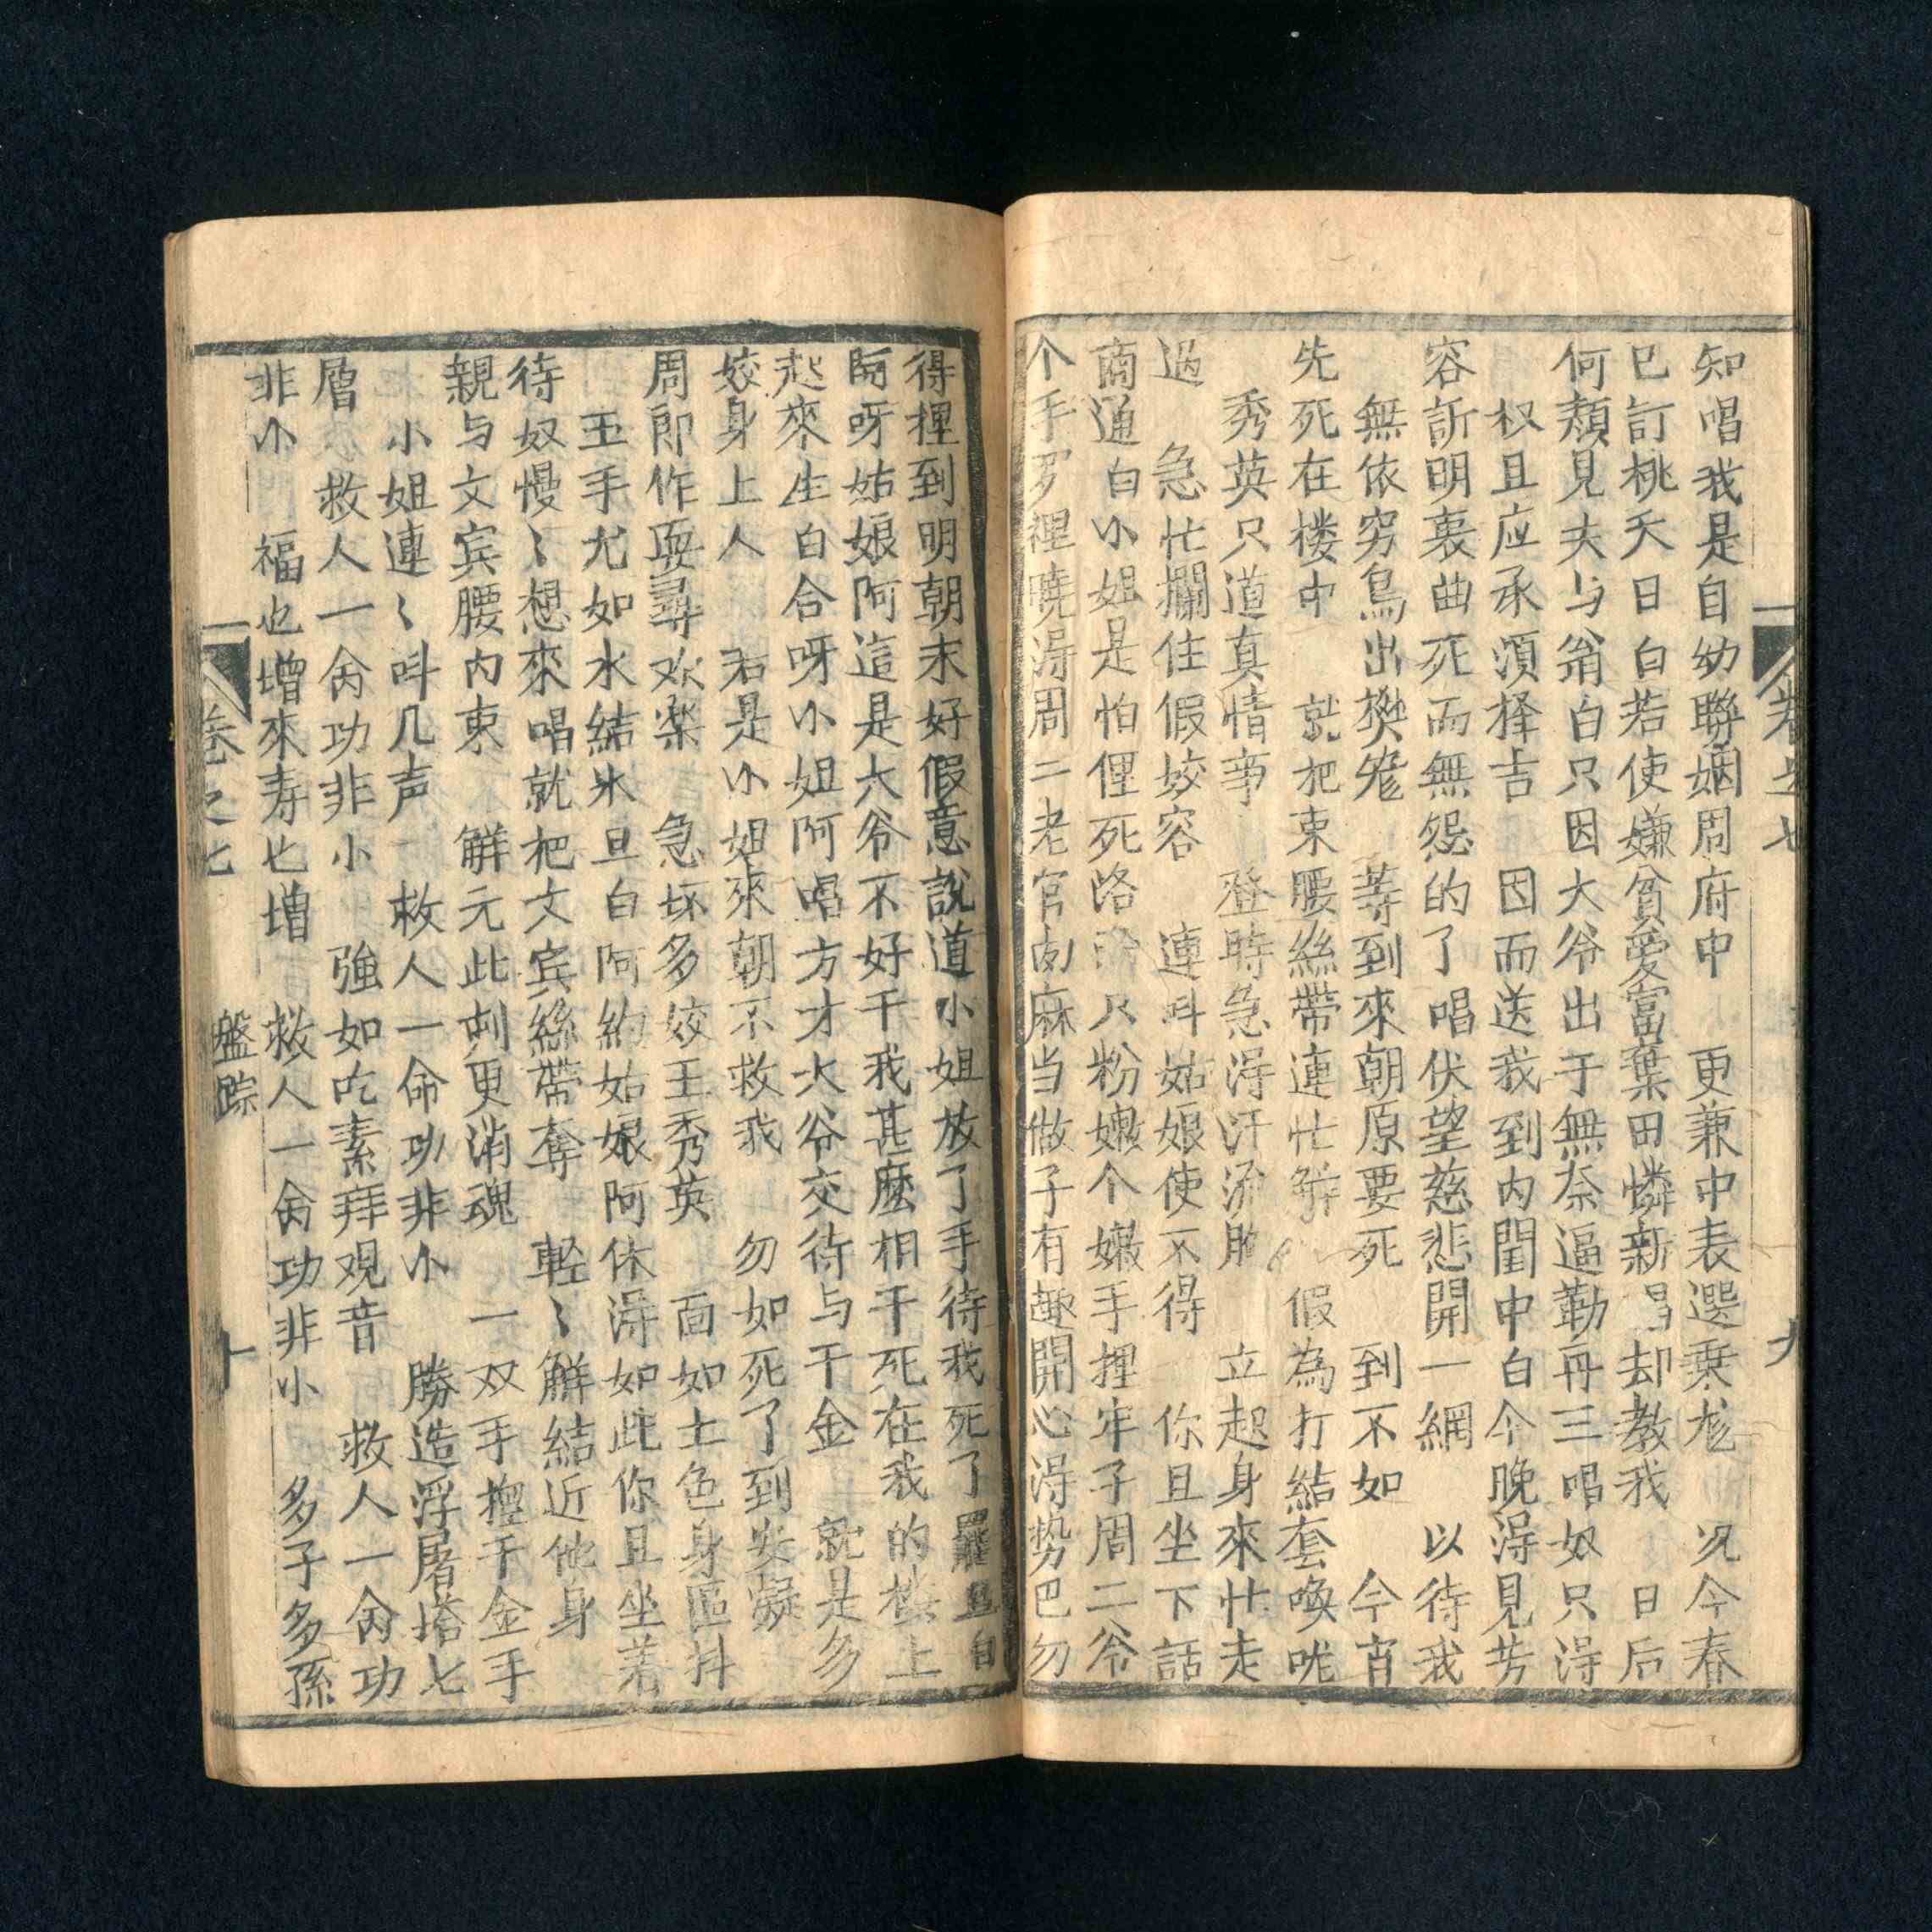 知唱我是自幼聯姻周府中　更兼中表選乗尨　况今春
已訂桃夭日白若使嫌貧愛富棄田憐新唱却教我　日后
何頽見夫与翁白只因大爷出于無奈逼勒再三唱奴只淂
权且应承湏择吉　因而送我到内閨中白今晚淂見芳
容訢明衷曲死而無怨的了唱伏望慈悲開一網　以待我
無依穷鳥出樊笼　等到來朝原要死　到不如　今宵
先死在楼中　就把束腰絲帶連忙解　假為打結套喚咙
秀英只道真情事　登時急淂汗流胸　立起身來忙走
过　急忙攔住假姣容　連呌姑娘使不得　你且坐下話
商通白小姐是怕俚死咯　只粉嫩个嫩手捏牢子周二爷
个手罗裡曉淂周二老官肉麻当做子有趣開心淂势巴勿
得捏到明朝末好假意說道小姐放了手待我死了罷旦白
阿呀姑娘阿這是大爷不好干我甚麽相干死在我的楼上
起來生白合呀小姐阿唱方才大爷交待与千金　就是多
姣身上人　若是小姐來朝不救我　勿如死了到安凝
周郎作耍尋欢楽　急坏多姣王秀英　面如土色身區抖
玉手尤如水結氷旦白阿約姑娘阿休淂如此你且坐着
待奴慢〻想來唱就把文宾絲帶奪　輕〻解結近他身
親与文宾腰内束　解元此刻更消魂　一双手摟千金手
小姐連〻呌几声　救人一命功非小　勝造浮屠塔七
層　救人一命功非小　強如吃素拜观音　救人一命功
非小　福也增來寿也增　救人一命功非小　多子多孫
卷之七　九
卷之七　盤踪　十